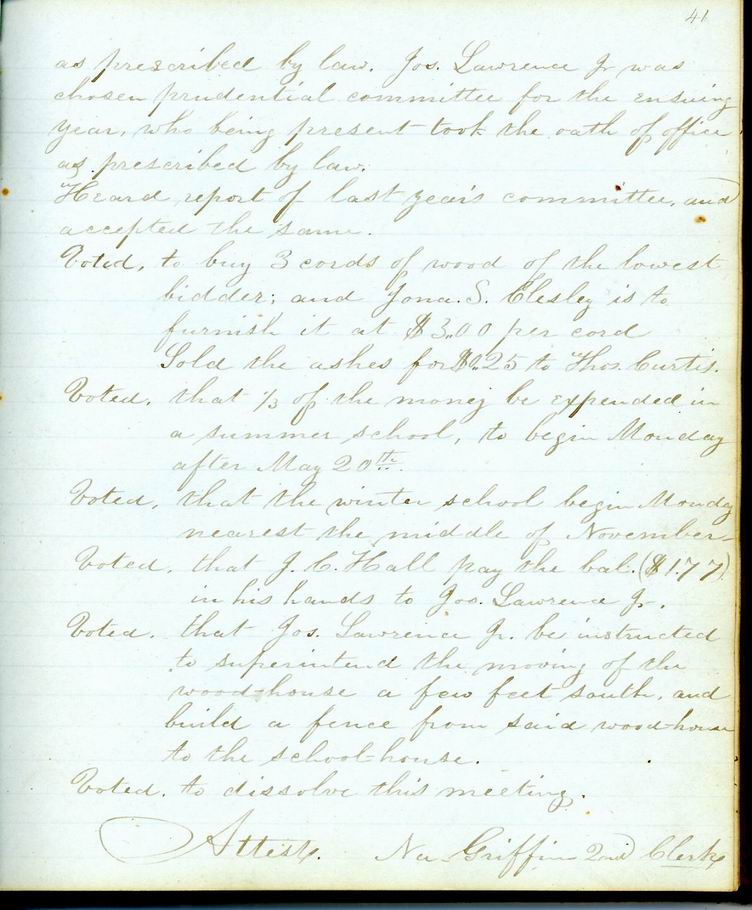 41
as prescribed by law. Jos. Lawrence Jr was
chosen prudential committee for the ensuing
year, who being present took the oath of office
as prescribed by law.
Heard report of last year's committee, and
accepted the same.
Voted, to buy 3 cords of wood of the lowest
bidder; and Jona. S. Elesley is to
furnish it at $3.00 per cord
Sold the ashes for $0.25 to Thos. Curtis.
Voted, that 1/3 of the money be expended in
a summer school, to begin Monday
after May 20th.
Voted, that the winter school begin Monday
nearest the middle of November.
Voted, that J. C. Hall pay the bal. ($1.77)
in his hands to Jos. Lawrence Jr.
Voted, that Jos. Lawrence Jr. be instructed
to superintend the moving of the
wood-house a few feet south, and
build a fence from said wood-house
to the school-house.
Voted, to dissolve this meeting.
Attest, Griffin 2nd Clerk